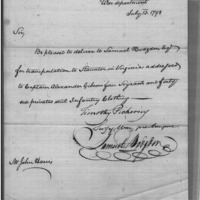 War department
July 13. 1795
Sir,
Be pleased to deliver to Samuel Hodgdon Esq
for transportation to Staunton in Virginia addressed
to Captain Alexander Gibson four Sergeants and forty
six privates suits Infantry Clothing
Timothy Pickering
Samuel Hodgdon
Mr John Harris